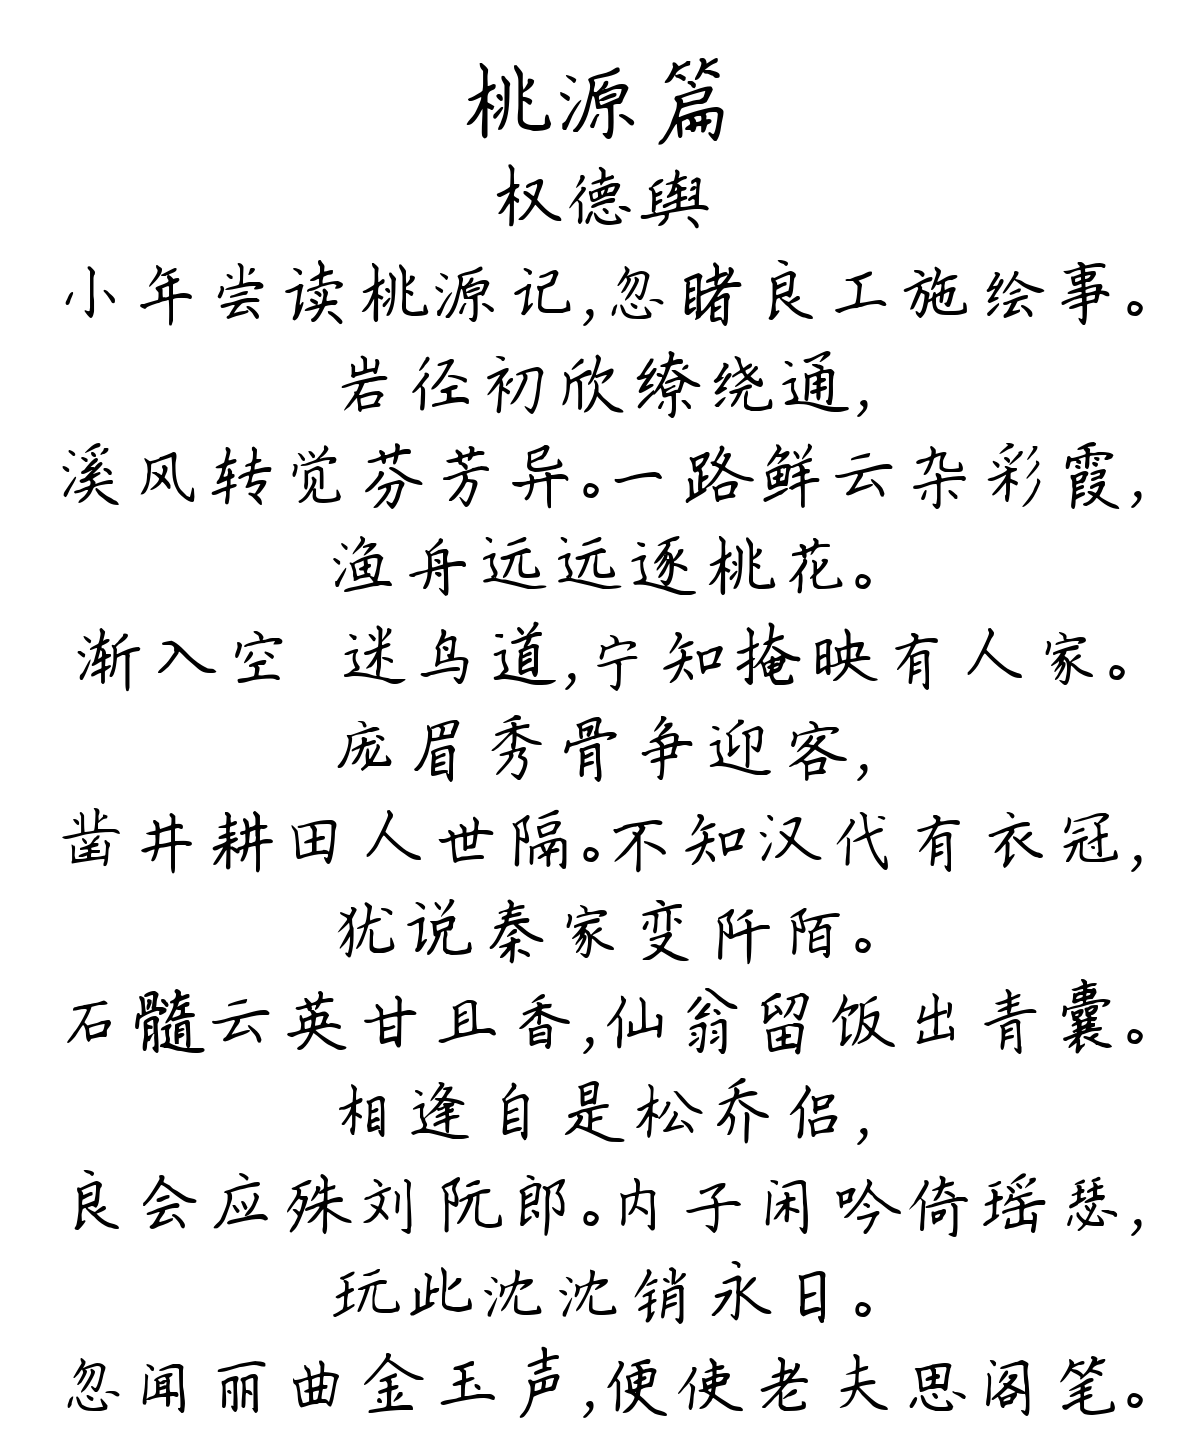 桃源篇
权德舆
小年尝读桃源记,忽睹良工施绘事。
岩径初欣缭绕通,
溪风转觉芬芳异。一路鲜云杂彩霞,
渔舟远远逐桃花。
渐入空 迷鸟道,宁知掩映有人家。
庞眉秀骨争迎客,
凿井耕田人世隔。不知汉代有衣冠,
犹说秦家变阡陌。
石髓云英甘且香,仙翁留饭出青囊。
相逢自是松乔侣,
良会应殊刘阮郎。内子闲吟倚瑶瑟,
玩此沈沈销永日。
忽闻丽曲金玉声,便使老夫思阁笔。